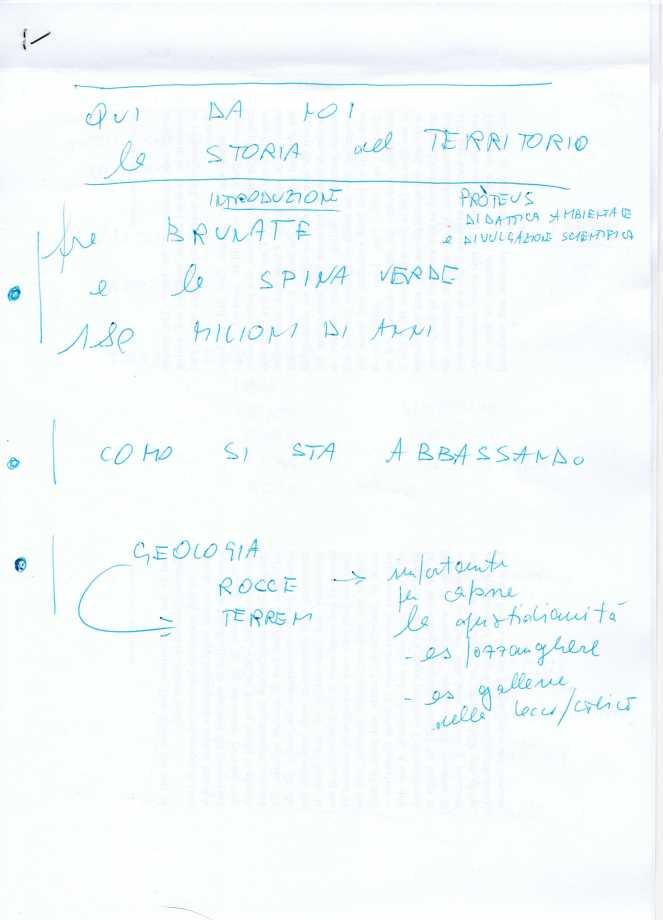 1
QUI DA NOI
la STORIA del TERRITORIO
INTRODUZIONE
PRÒTEUS
DIDATTICA AMBIENTALE
e DIVULGAZIONE SCIENTIFICA
fra BRUNATE
e la SPINA VERDE
180 MILIONI DI ANNI
COMO SI STA ABBASSANDO
GEOLOGIA
ROCCE → importante
TERRENI
per capire
la quotidianità
- es pozzanghere
- es gallerie
nella Lecco/Colico